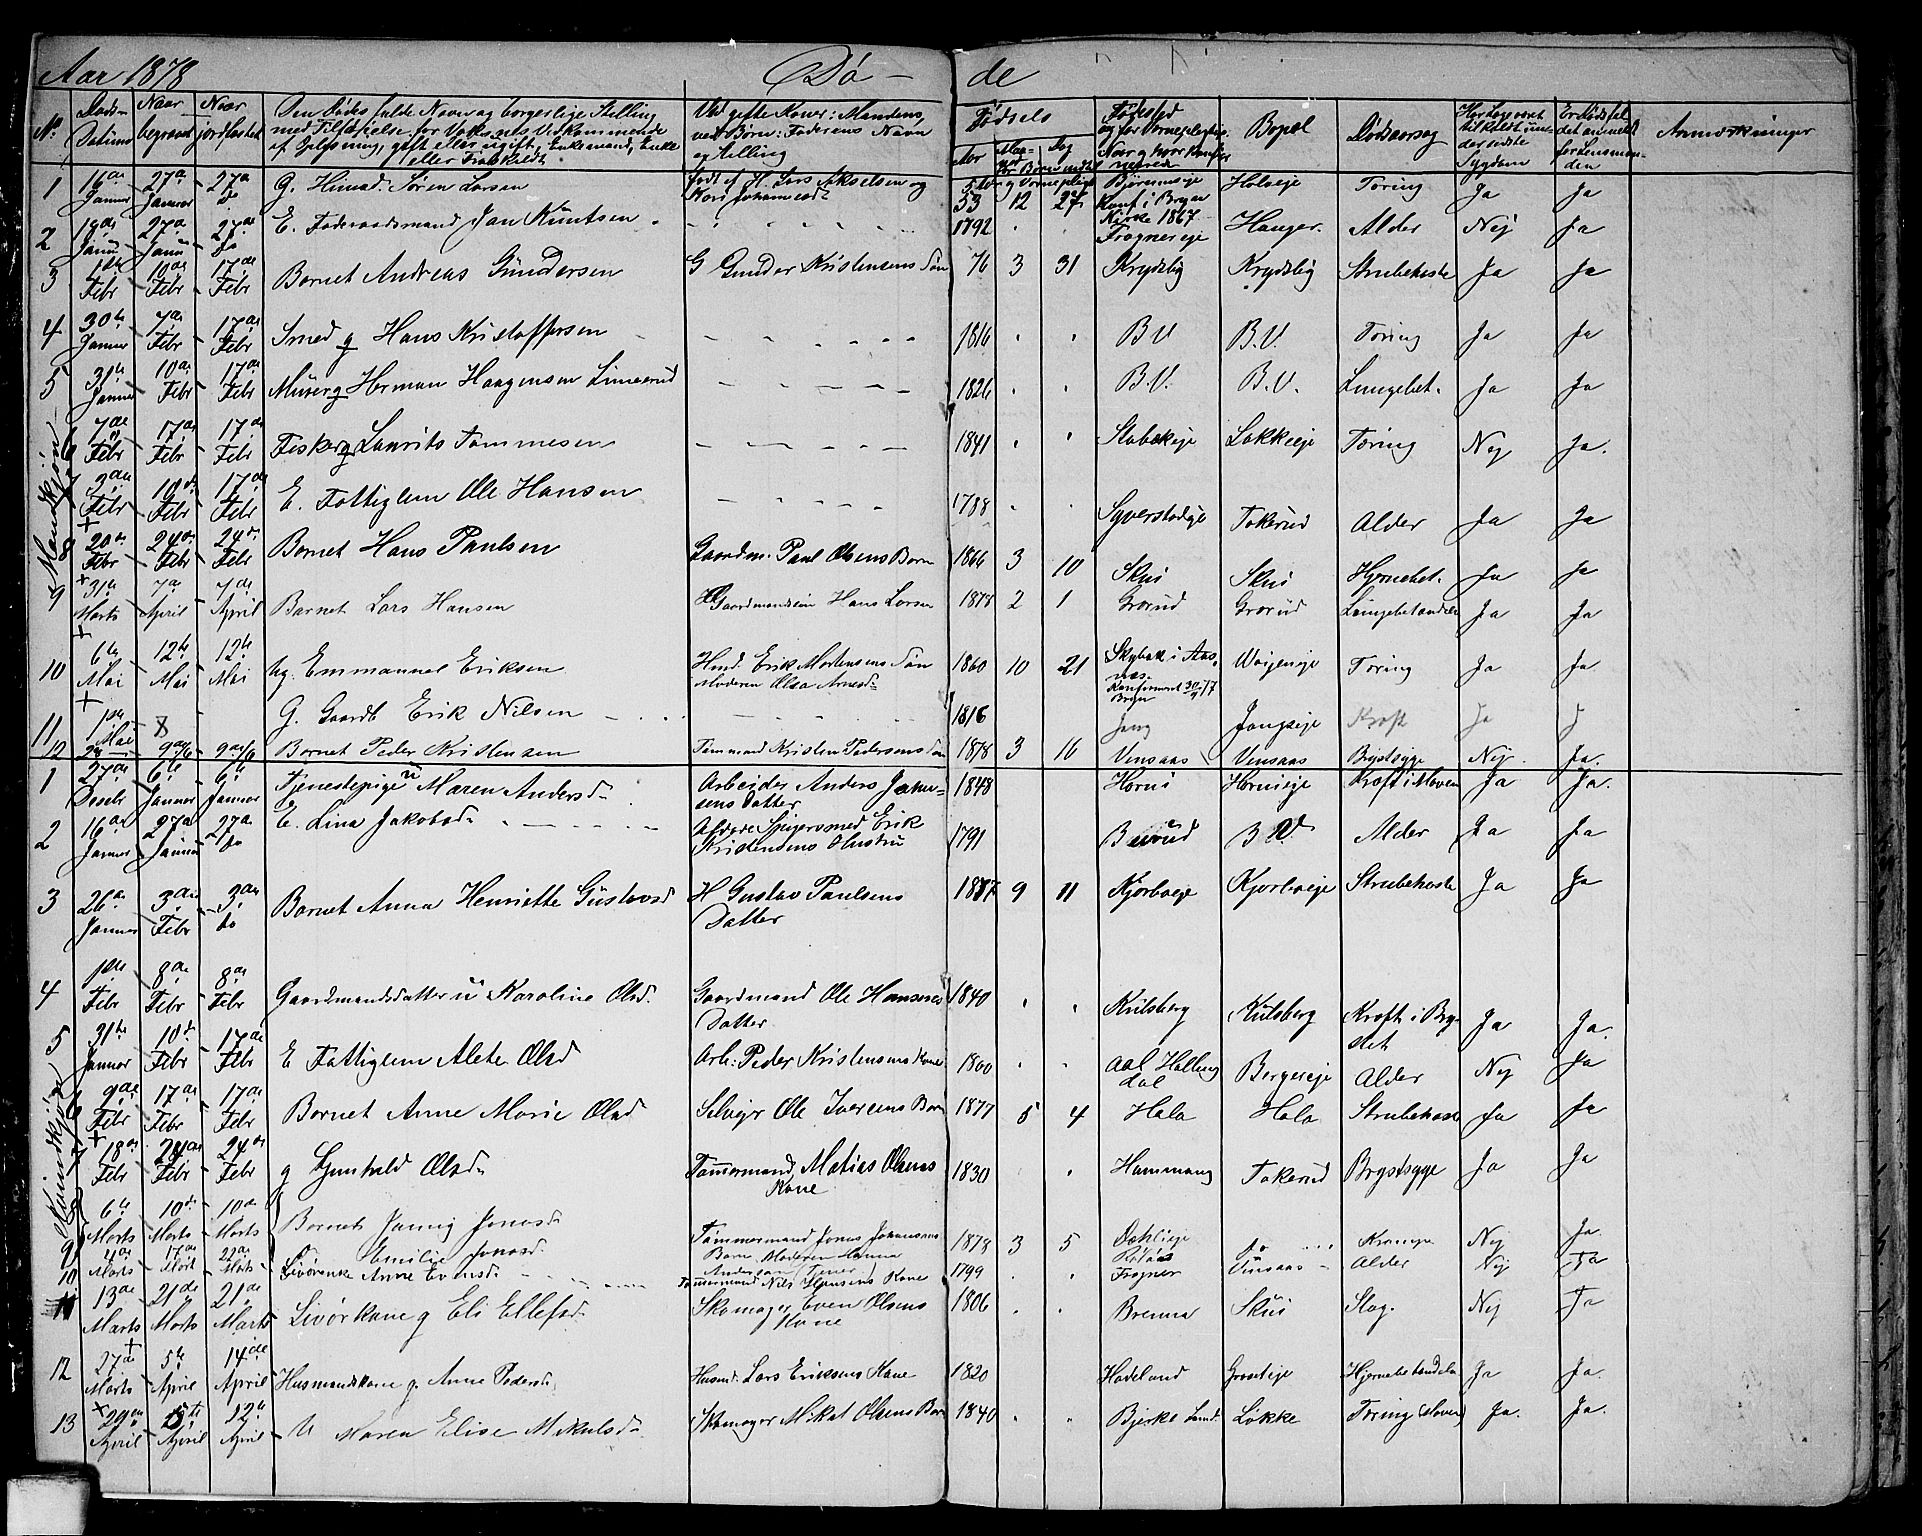 Aar 1878 Dö – de
No. Döds-Datum Naar begravet Naar jordfæstet Den Dödes fulde Navn og borgerlige Stilling Ved gifte Koner: Mandens, ved Börn: Faderens Navn og Stilling Födsels Aar Dag Födested Bopæl Dödsaarsag Anmærkninger
1 16de Januar 27de Januar 27de G. Husmd. Sören Larsen 53 12 27 Bjerumseie Holveje Tæring Ja Ja
Konf. i Bryn Kirke 1867
2 19de Januar 27de Janu 27de do E. Föderaadsmand Jan Knutsen 1792 Frognereje Hanger Alder Nej Ja
3 1ste Febr 10de Febr 17de Febr Barnet Andreas Gundersen G Gunder Kristensens Sön 76 3 31 Krydsby Krydsby Strubehoste Ja Ja
4 30te Januar 7de Febr 17de Febr Smed g Hans Kristoffersen 1816 B.V B.V. Tæring Ja Ja
5 31te Januar 10de Febr 17de Febr Murer g Herman Haagensen 1826 B.V. B.V. Lungebet. Ja Ja
Mandkjön
6 7de Febr 17de Febr 17de Febr Fisker g Laurits Tommesen 1841 Stabækeje Løkkeeje Tæring Nej Ja.
7 3die Febr 10de Febr 17de Febr E. Fattiglem Ole Hansen 1788 Syverstadeje Tokerud Alder Ja Ja
8 20de Febr 24de Febr 24de Febr Barnet Hans Paulsen Gaardm. Paul Olsens Barn 1866 3 10 Skui Skui Hjernebet. Ja Ja
9 31te Marts 7de April 7de April Barnet Lars Hansen Gaardmandssön Hans Larsen 1878 2 1 Grorud Grorud Lungebetændelse Ja Ja
10 6te Mai 12te Mai 12te Mai ug. Emmanuel Eriksen Husd. Erik Mortensens Sön Moderen Olea Arnesd. 1860 10 21 Skybak i Aas Konfirmeret 30/9 77 Bryn Tæring Ja Ja
11 1ste Mai G. Gaardb Erik Nilsen 1816 Jong Jongseje Kræft Ja J
12 9de/6 9de/6 Barnet Peder Kristensen Tömmermand Kristen Pedersens Sön 1878 3 16 Vensaas Vensaas Brystsyge Nej. Ja.
1 27de Decbr 6te Januar 6te Januar Tjenestepige u Maren Andersd. Arbeider Anders Jakobsens Datter 1848 Horni Hornieje Kræft i Maven Ja Ja.
2 16de Januar 27de Januar 27de do E. Lina Jakobsd. Afdöde Spigersmed Erik Kristensens Hustru 1791 Bærud B V. Alder Ja Ja
3 26de Januar 3die Febr 3die do Barnet Anna Henriette Gustavsd H Gustav Paulsens Datter 1877 9 11 Kjorboeje Kjorboeje Strubehoste Ja Ja
4 1ste Febr 8de Febr 8de Febr Gaardmandsdatter u Karoline Olsd. Gaardmand Ole Hansens Datter 1840 Kulsberg Kulsberg Kræft i Brystet Ja Ja.
5 31te Januar 10de Febr 17de Febr E Fattiglem Alete Olsd Arb: Peder Kristensens Kone 1800 Aal Hallingdal Bergereje Alder Nej Ja
Kvindekjön
6 9de Febr 17de Febr 17de Febr Barnet Anne Marie Olsd Selvejer Ole Iversens Barn 1877 5 4 Hala Hala Strubehoste Ja Ja
7 18de Febr 24de Febr 24de Febr g Gunhild Olsd. Tömmermand Matias Olsens Kone 1830 Hammang Tokerud Brystsyge Ja Ja
8 6te Marts 10de Marts 10de Marts Barnet Janny Jonasd. Tömmermand Jonas Johansens Barn Moderen Hanna Andersen 1878 3 5 Dahlieje do Krampe Nej Ja
9 Emilie Jonasd.
10 4de Marts 17de Mart 22de Marts Livörenke Anne Evensd. Tömmermand Nils Hansens Kone 1799 Frogner Vensaas Alder Nej Ja
11 13de Marts 21de Marts 21de Marts Livörkone g Eli Ellefsd. Skomager Even Olsens Kone 1806 Brenna Skui Slag. Nej Ja
12 27de Marts 5te April 14de April Husmandskone g. Anne Pedersd. Husmd. Lars Eriksens Kone 1820 Hadeland Hjernebetændelse Ja Ja.
13 29de April 5te April 12te April U Maren Elise Mikalsd. Skomager Mikal Olsens Barn 1840 Bjerke Lund. Løkke Tæring (Maven) Ja. Ja.